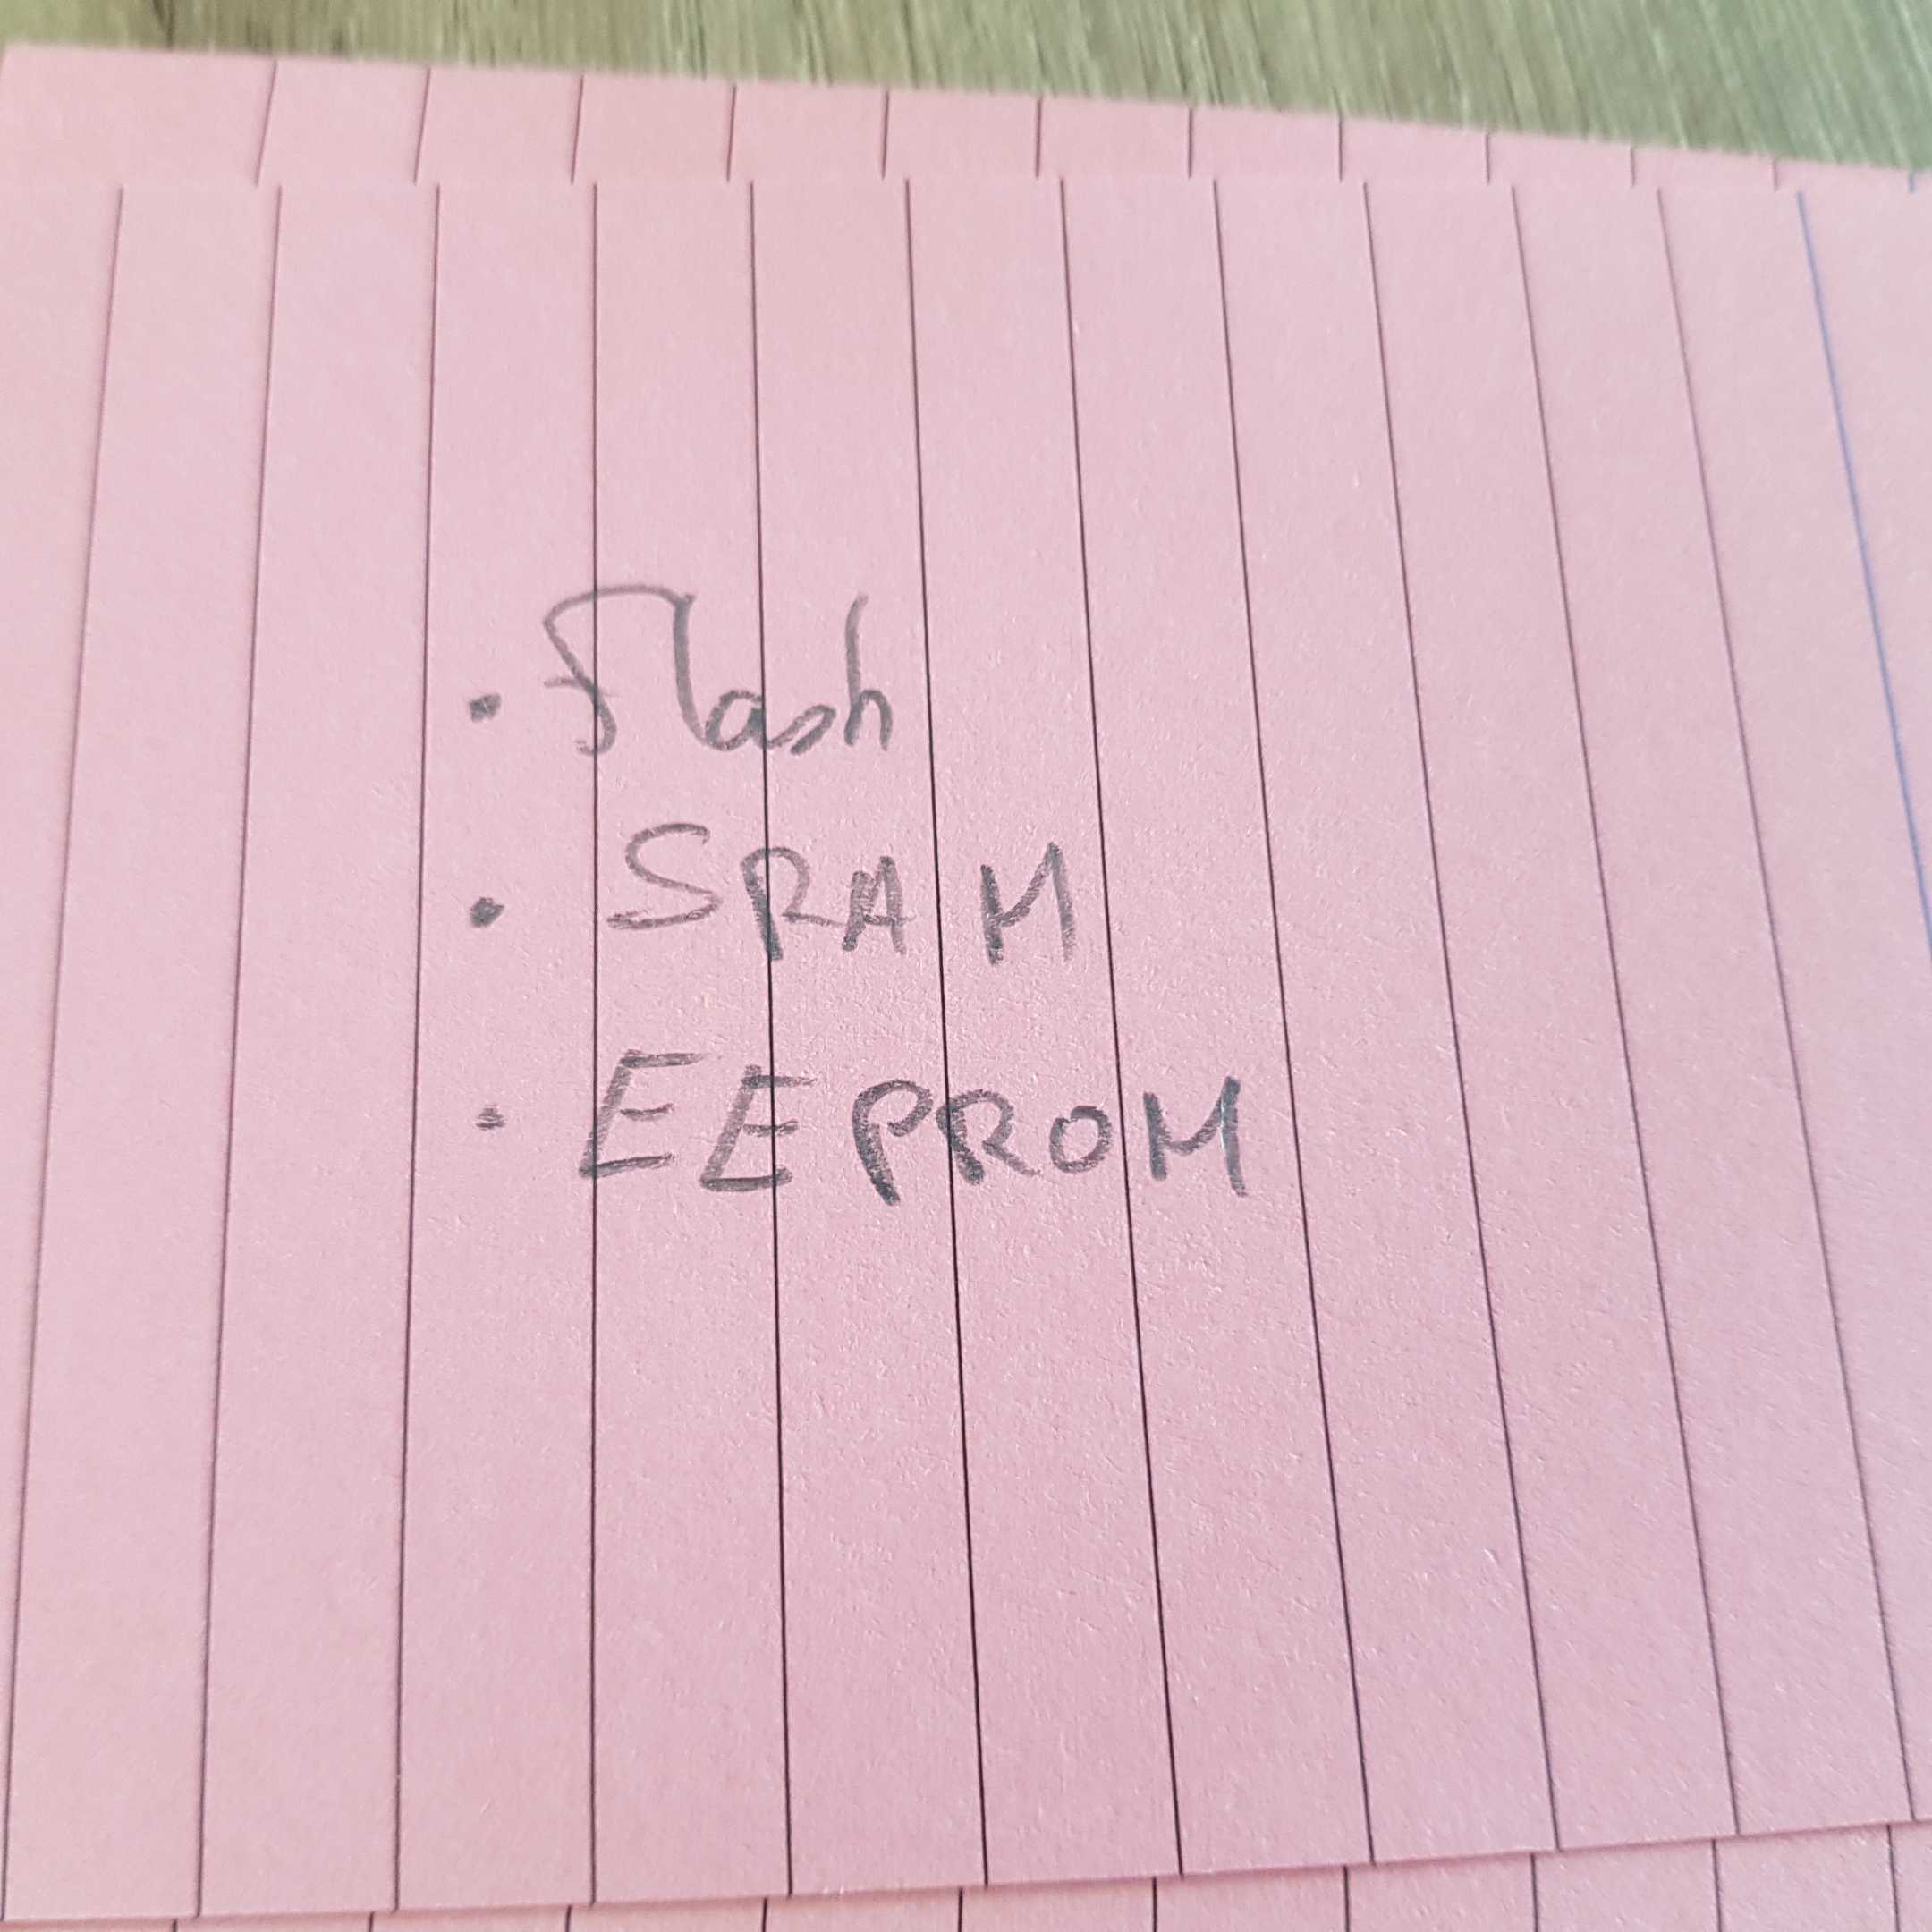 • Flash
• SRAM
• EEPROM